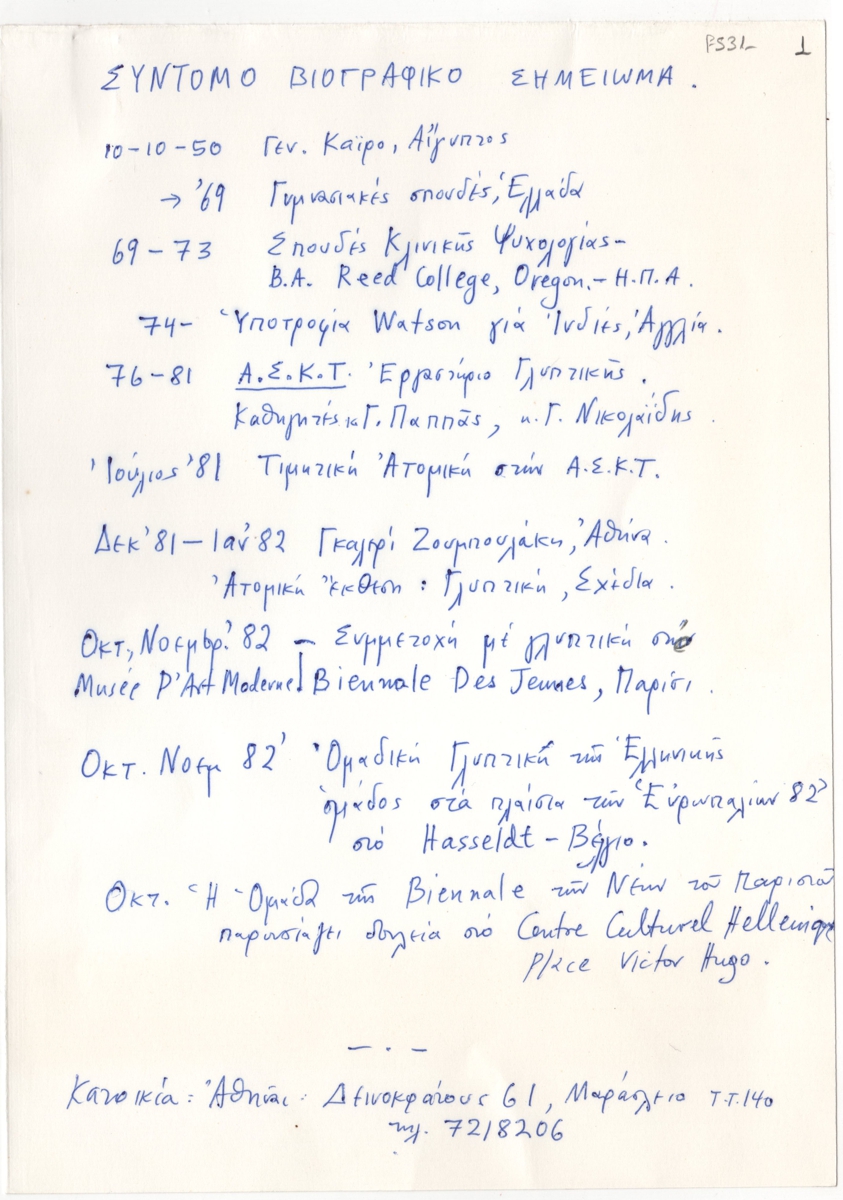 FS31 1
ΣΥΝΤΟΜΟ ΒΙΟΓΡΑΦΙΚΟ ΣΗΜΕΙΩΜΑ.
10-10-50 Γεν. Καΐρο, Αἴγυπτος
→ '69 Γυμνασιακές σπουδές, Ἑλλάδα
69-73 Σπουδές Κλινικῆς Ψυχολογίας-
B.A. Reed College, Oregon.- Η.Π.Α.
74- Ὑποτροφία Watson γιά Ἰνδίες, Ἀγγλία.
76-81 Α.Σ.Κ.Τ. Ἐργαστήριο Γλυπτικῆς.
Καθηγητές κ. Γ. Παππᾶς, κ. Γ. Νικολαΐδης.
Ἰούλιος '81 Τιμητική Ἀτομική στήν Α.Σ.Κ.Τ.
Δεκ '81 - Ιαν '82 Γκαλερί Ζουμπουλάκη, Ἀθήνα.
Ἀτομική Ἔκθεση: Γλυπτική, Σχέδια.
Οκτ, Νοεμβρ. '82 - Συμμετοχή μέ γλυπτική στό
Musée D'Art Moderne Biennale Des Jeunes, Παρίσι.
Οκτ. Νοεμ 82' Ὁμαδική Γλυπτική τῆς Ἑλληνικῆς
ὁμάδος στά πλαίσια τῶν Εὐρωπαλίων 82'
στό Hasseldt - Βέλγιο.
Οκτ. Ἡ Ὁμάδα τῆς Biennale τῶν Νέων τοῦ Παρισιοῦ
παρουσιάζει δουλεία στό Centre Culturel Hellenique
Place Victor Hugo.
- . -
Κατοικία: Ἀθῆναι: Δεινοκράτους 61, Μαράσλειο Τ.Τ. 140
τηλ. 7218206